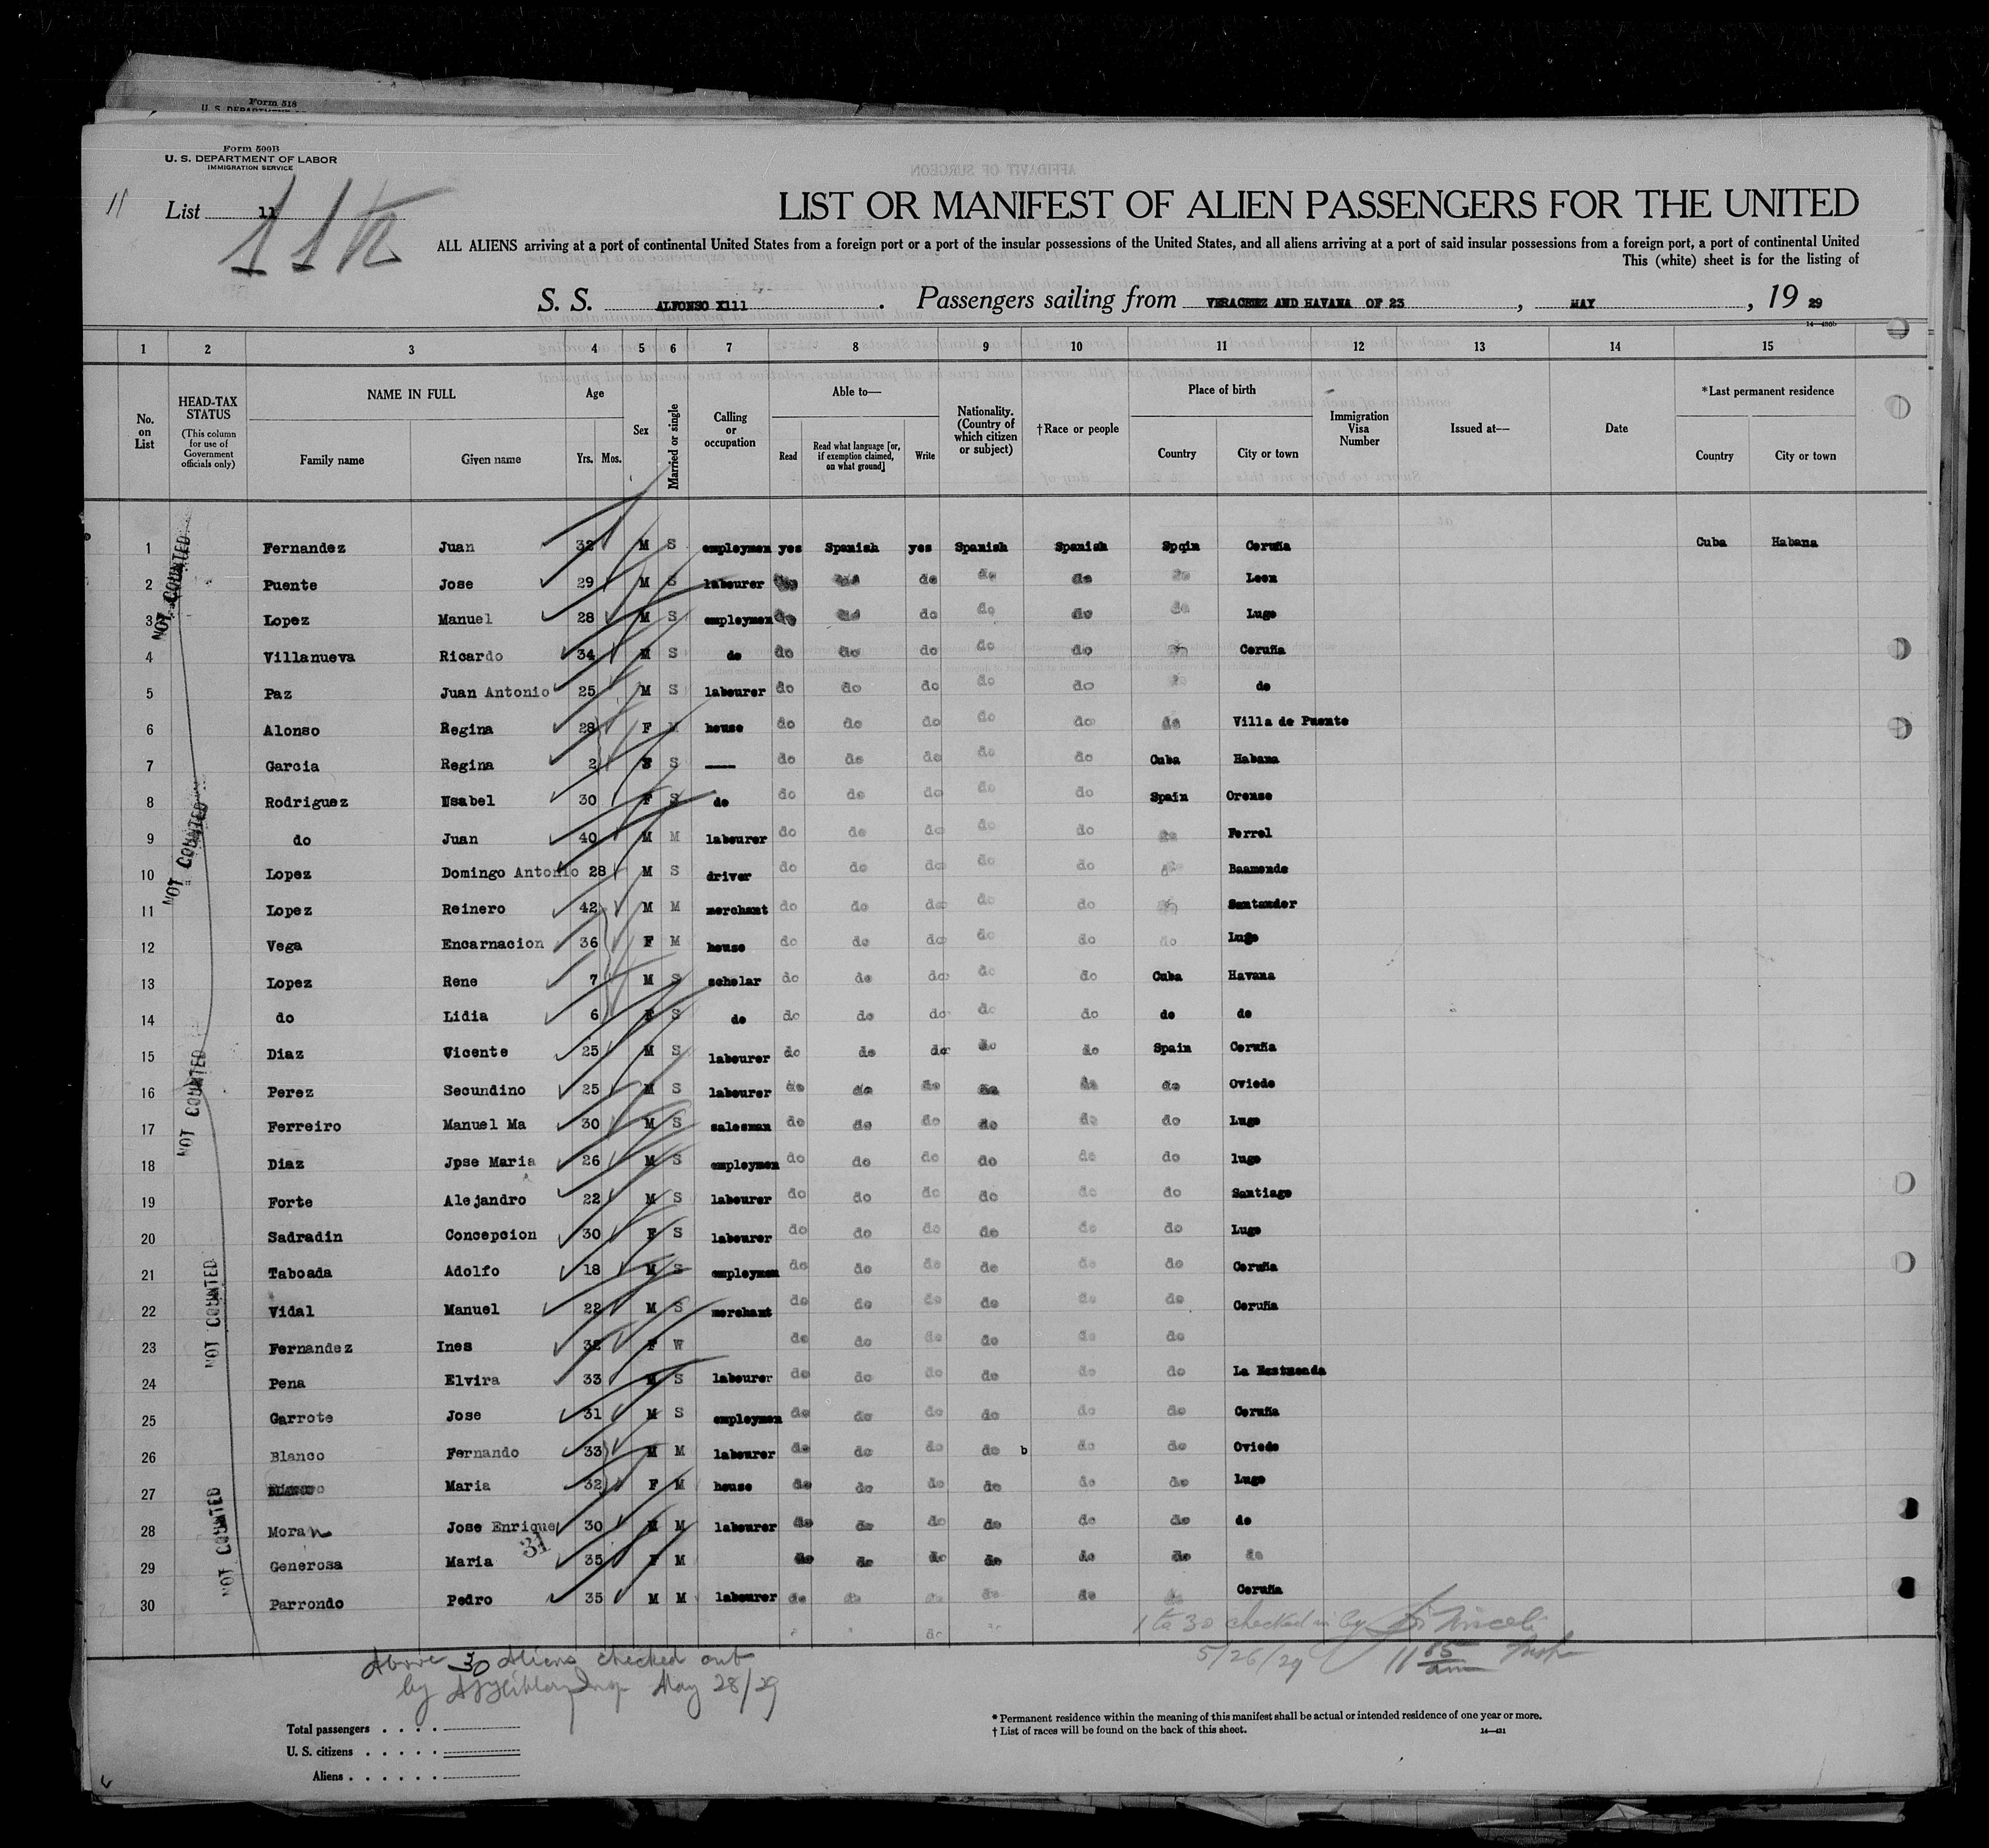 Form 518
Form 500B
U. S. DEPARTMENT OF LABOR
IMMIGRATION SERVICE
11 List 11
LIST OR MANIFEST OF ALIEN PASSENGERS FOR THE UNITED
ALL ALIENS arriving at a port of continental United States from a foreign port or a port of the insular possessions of the United States, and all aliens arriving at a port of said insular possessions from a foreign port, a port of continental United
This (white) sheet is for the listing of
S. S. ALFONSO X111 . Passengers sailing from VERACRUZ AND HAVANA OF 23 , MAY , 19 29
14—430b
1 2 3 4 5 6 7 8 9 10 11 12 13 14 15
No. on List
HEAD-TAX STATUS (This column for use of Government officials only)
NAME IN FULL Family name Given name
Age Yrs. Mos.
Sex
Married or single
Calling or occupation
Able to— Read Read what language [or, if exemption claimed, on what ground] Write
Nationality. (Country of which citizen or subject)
†Race or people
Place of birth Country City or town
Immigration Visa Number
Issued at—
Date
*Last permanent residence Country City or town
1 Fernandez Juan 32 M S employmen yes Spanish yes Spanish Spanish Spqin Coruña Cuba Habana
2 Puente Jose 29 M S labourer do do do do do do Leon
3 Lopez Manuel 28 M S employmen do do do do do do Lugo
4 Villanueva Ricardo 34 M S do do do do do do Coruña
5 Paz Juan Antonio 25 M S labourer do do do do do do
6 Alonso Regina 28 F M house do do do do do do Villa de Puente
7 Garcia Regina 2 F S do do do do do Cuba Habana
8 Rodriguez Usabel 30 F S do do do do do do Spain Orense
9 do Juan 40 M M labourer do do do do do do Ferrol
10 Lopez Domingo Antonio 28 M S driver do do do do do do Baamonde
11 Lopez Reinero 42 M M merchant do do do do do Santander
12 Vega Encarnacion 36 F M house do do do do do do Lugo
13 Lopez Rene 7 M S scholar do do do do do Cuba Havana
14 do Lidia 6 F S do do do do do do do do
15 Diaz Vicente 25 M S labourer do do do do do Spain Coruña
16 Perez Secundino 25 M S labourer do do do do do do Oviedo
17 Ferreiro Manuel Ma 30 M S salesman do do do do do do Lugo
18 Diaz Jpse Maria 26 M S employmen do do do do do do lugo
19 Forte Alejandro 22 M S labourer do do do do do do Santiago
20 Sadradin Concepcion 30 F S labourer do do do do do do Lugo
21 Taboada Adolfo 18 M S employmen do do do do do do Coruña
22 Vidal Manuel 22 M S merchant do do do do do do Coruña
23 Fernandez Ines 32 F W do do do do do do
24 Pena Elvira 33 M S labourer do do do do do do La
25 Garrote Jose 31 M S employmen do do do do do do Coruña
26 Blanco Fernando 33 M M labourer do do do do b do do Oviedo
27 Maria 32 F M house do do do do do do Lugo
28 Moran Jose Enrique 30 M M labourer do do do do do do do
31
29 Generosa Maria 35 F M do do do do do do do
30 Parrondo Pedro 35 M M labourer do do do do do do Coruña
do
NOT COUNTED
NOT COUNTED
NOT COUNTED
NOT COUNTED
NOT COUNTED
1 to 30 checked in by
5/26/29 11
Above 30 Aliens checked out
by May 28/29
Total passengers . . . .
U. S. citizens . . . . .
Aliens . . . . . .
* Permanent residence within the meaning of this manifest shall be actual or intended residence of one year or more.
† List of races will be found on the back of this sheet. 14—431